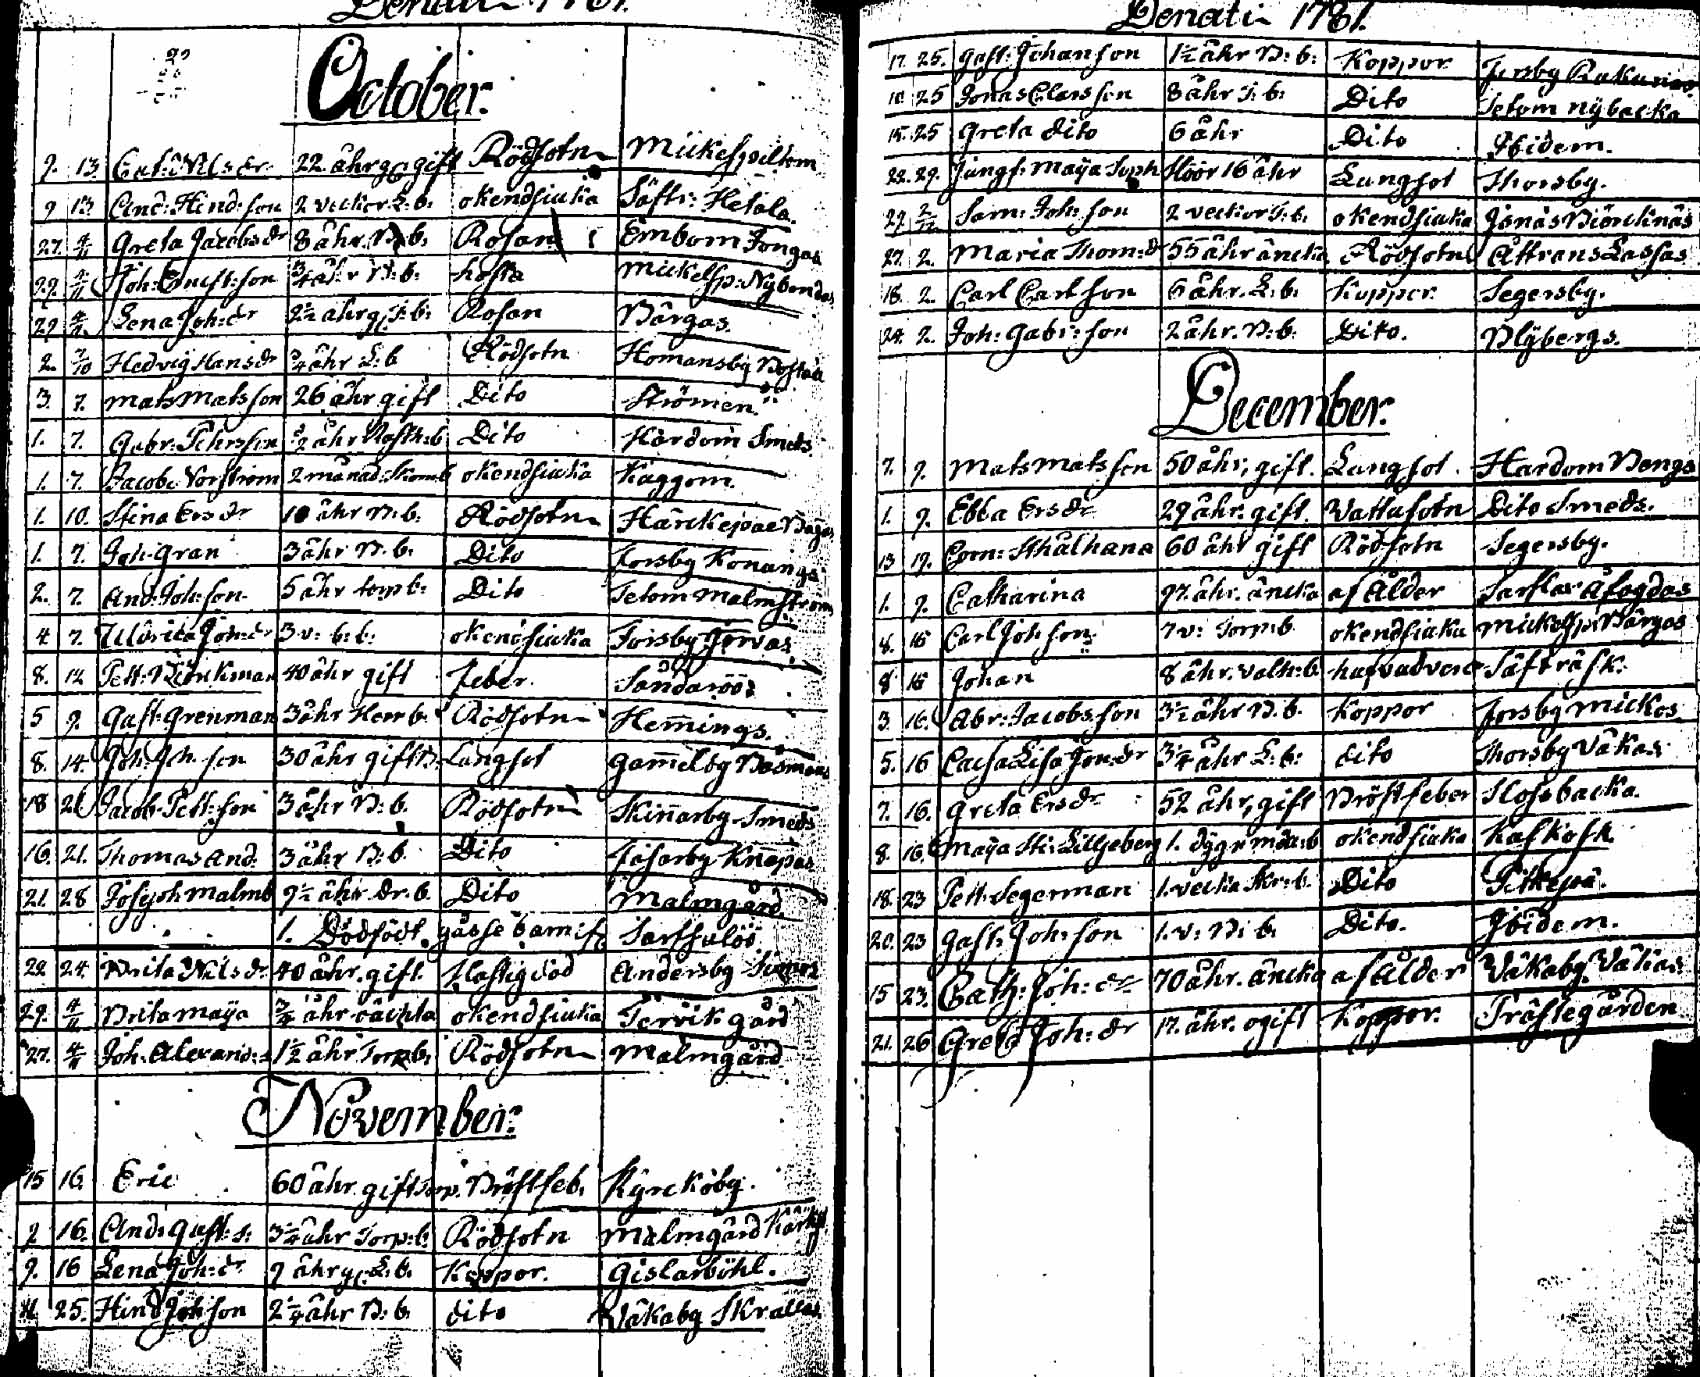 Denati 1781.
October.
9. 13. Cat: Nils dr. 22 åhr gl gift Rödsotn Mickelspiltom
9 13. And: Hind: son 2 veckor L: b. okend siuka Säftr: Hetala.
27. 4/11 Greta Jacobs dr 8 åhr. B: b. Rosan Embom Jongas
29. 4/11 Joh: Ernst: son 3/4 åhr B: b. hosta Mickelsp: Nybondas
29 4/11 Lena Joh: dr 2 1/2 åhr gl. T: b. Rosan Bärgas.
2. 7/10 Hedvig Hans dr 3/4 åhr L: b. Rödsotn Homansby
3. 7. Mats Matsson 26 åhr gift Dito Strömen.
1. 7. Gabr: Pehrsson 1/2 åhr Dito Hardom Smeds.
1. 7. Jacob Norström 2 månad okend siuka Kaggom.
1. 10. Stina Ers dr 10 åhr B: b. Rödsotn Härckepae
1. 7. Joh: Gran 3 åhr B. b. Dito Forsby Konangs
2. 7. And: Joh: son 5 åhr torp b. Dito Tetom Malmström
4 7. Ulärica Jon: dr 3 v: b: b: okend siuka Forsby Jervas
8. 14 Pett: Biörckman 40 åhr gift Feber. Sondaröö
5 9. Gust: Grenman 3 åhr Hem b. Rödsotn Hemings.
8. 14. Joh: Joh: son 30 åhr gift B: Langsot Gamelby Bosmans
18 21 Jacob Pett: son 3 åhr B: b. Rödsotn Skinarby Smeds
16. 21. Thomas And: 3 åhr B: b. Dito Isnäsby Knapas
21. 28 Joseph Malmb 9 1/2 åhr dr. b. Dito Malmgård
1. Dödfödt gässe barn Sarfsalöö
22. 24. Brita Nils dr 40 åhr. gift. Hastig död Andersby Simos
29. 4/11 Brita Maija 3/4 åhr oächta okend siuka Tervik gård
27. 4/11 Joh: Alexand: s 1 1/2 åhr Torp b: Rödsotn Malmgård
November:
15 16. Eric 60 åhr gift torp. Bröstfeb. Kyrckoby.
9 16. And: Gust: s: 3 1/4 åhr Torp: b: Rödsotn Malmgård
9. 16 Lena Joh: dr 9 åhr gl. L: b. Koppor. Gislarböhl.
11. 25. Hind Joh: son 2 1/4 åhr B: b. dito Wåkaby Skrallas
Denati 1781.
17. 25. Gust: Johanson 1 1/2 åhr B: b: Koppor. Forsby
10. 25 Jonas Clas son 8 åhr T: b. Dito Tetom nybacka
15. 25 Greta dito 6 åhr Dito Ibidem.
22. 29. Jungf: Maija Soph Höör 16 åhr Lungsot Thorsby.
29. 2/12 Sam: Joh: son 2 veckor T: b. okend siuka Isnäs Biörcknäs
27. 2. Maria Thom: dr 55 åhr äncka Rödsotn Åttrans Lassas
18. 2. Carl Carlson 6 åhr. L: b. Koppor. Segersby.
24. 2. Joh: Gabr: son 2 åhr. B: b. Dito. Blybergs.
December.
7. 9. Mats Matsson 50 åhr, gift. Lungsot. Hardom Bengs
1. 9. Ebba Ers dr 29 åhr. gift. Wattusotn Dito Smeds.
13 19. Corn: Ståthana 60 åhr gift Rödsotn Segersby.
1. 9. Catharina 97 åhr. äncka af ålder Sarfslax åfogdas
4. 16 Carl Joh son: 7 v: Torp: b. okend siuka Mickelsp: Bärgas
8 16 Johan 8 åhr. valh: b. Säfträsk.
3. 16. Abr: Jacobs son 3 1/2 åhr B: b. Koppor Forsby Mickos
5. 16 Caisa Lisa Jon: dr 3/4 åhr L: b: dito Thorsby Våkas
7. 16. Greta Ers dr 52 åhr, gift Bröstfeber Slossbacka.
8. 16. Maija Sti: Lilljeberg 1. dygn okend siuka Kaskosk.
18. 23 Pett: Segerman 1. vecka Skr: b. Dito Pitkepä.
20. 23 Gust: Joh: son 1. v: B: b. Dito. Ibidem.
15 23. Cath: Joh: dr 70 åhr. äncka af ålder Wåkaby Wåtias
21. 26 Greta Joh: dr 17. åhr. ogift Koppor. Prästegården